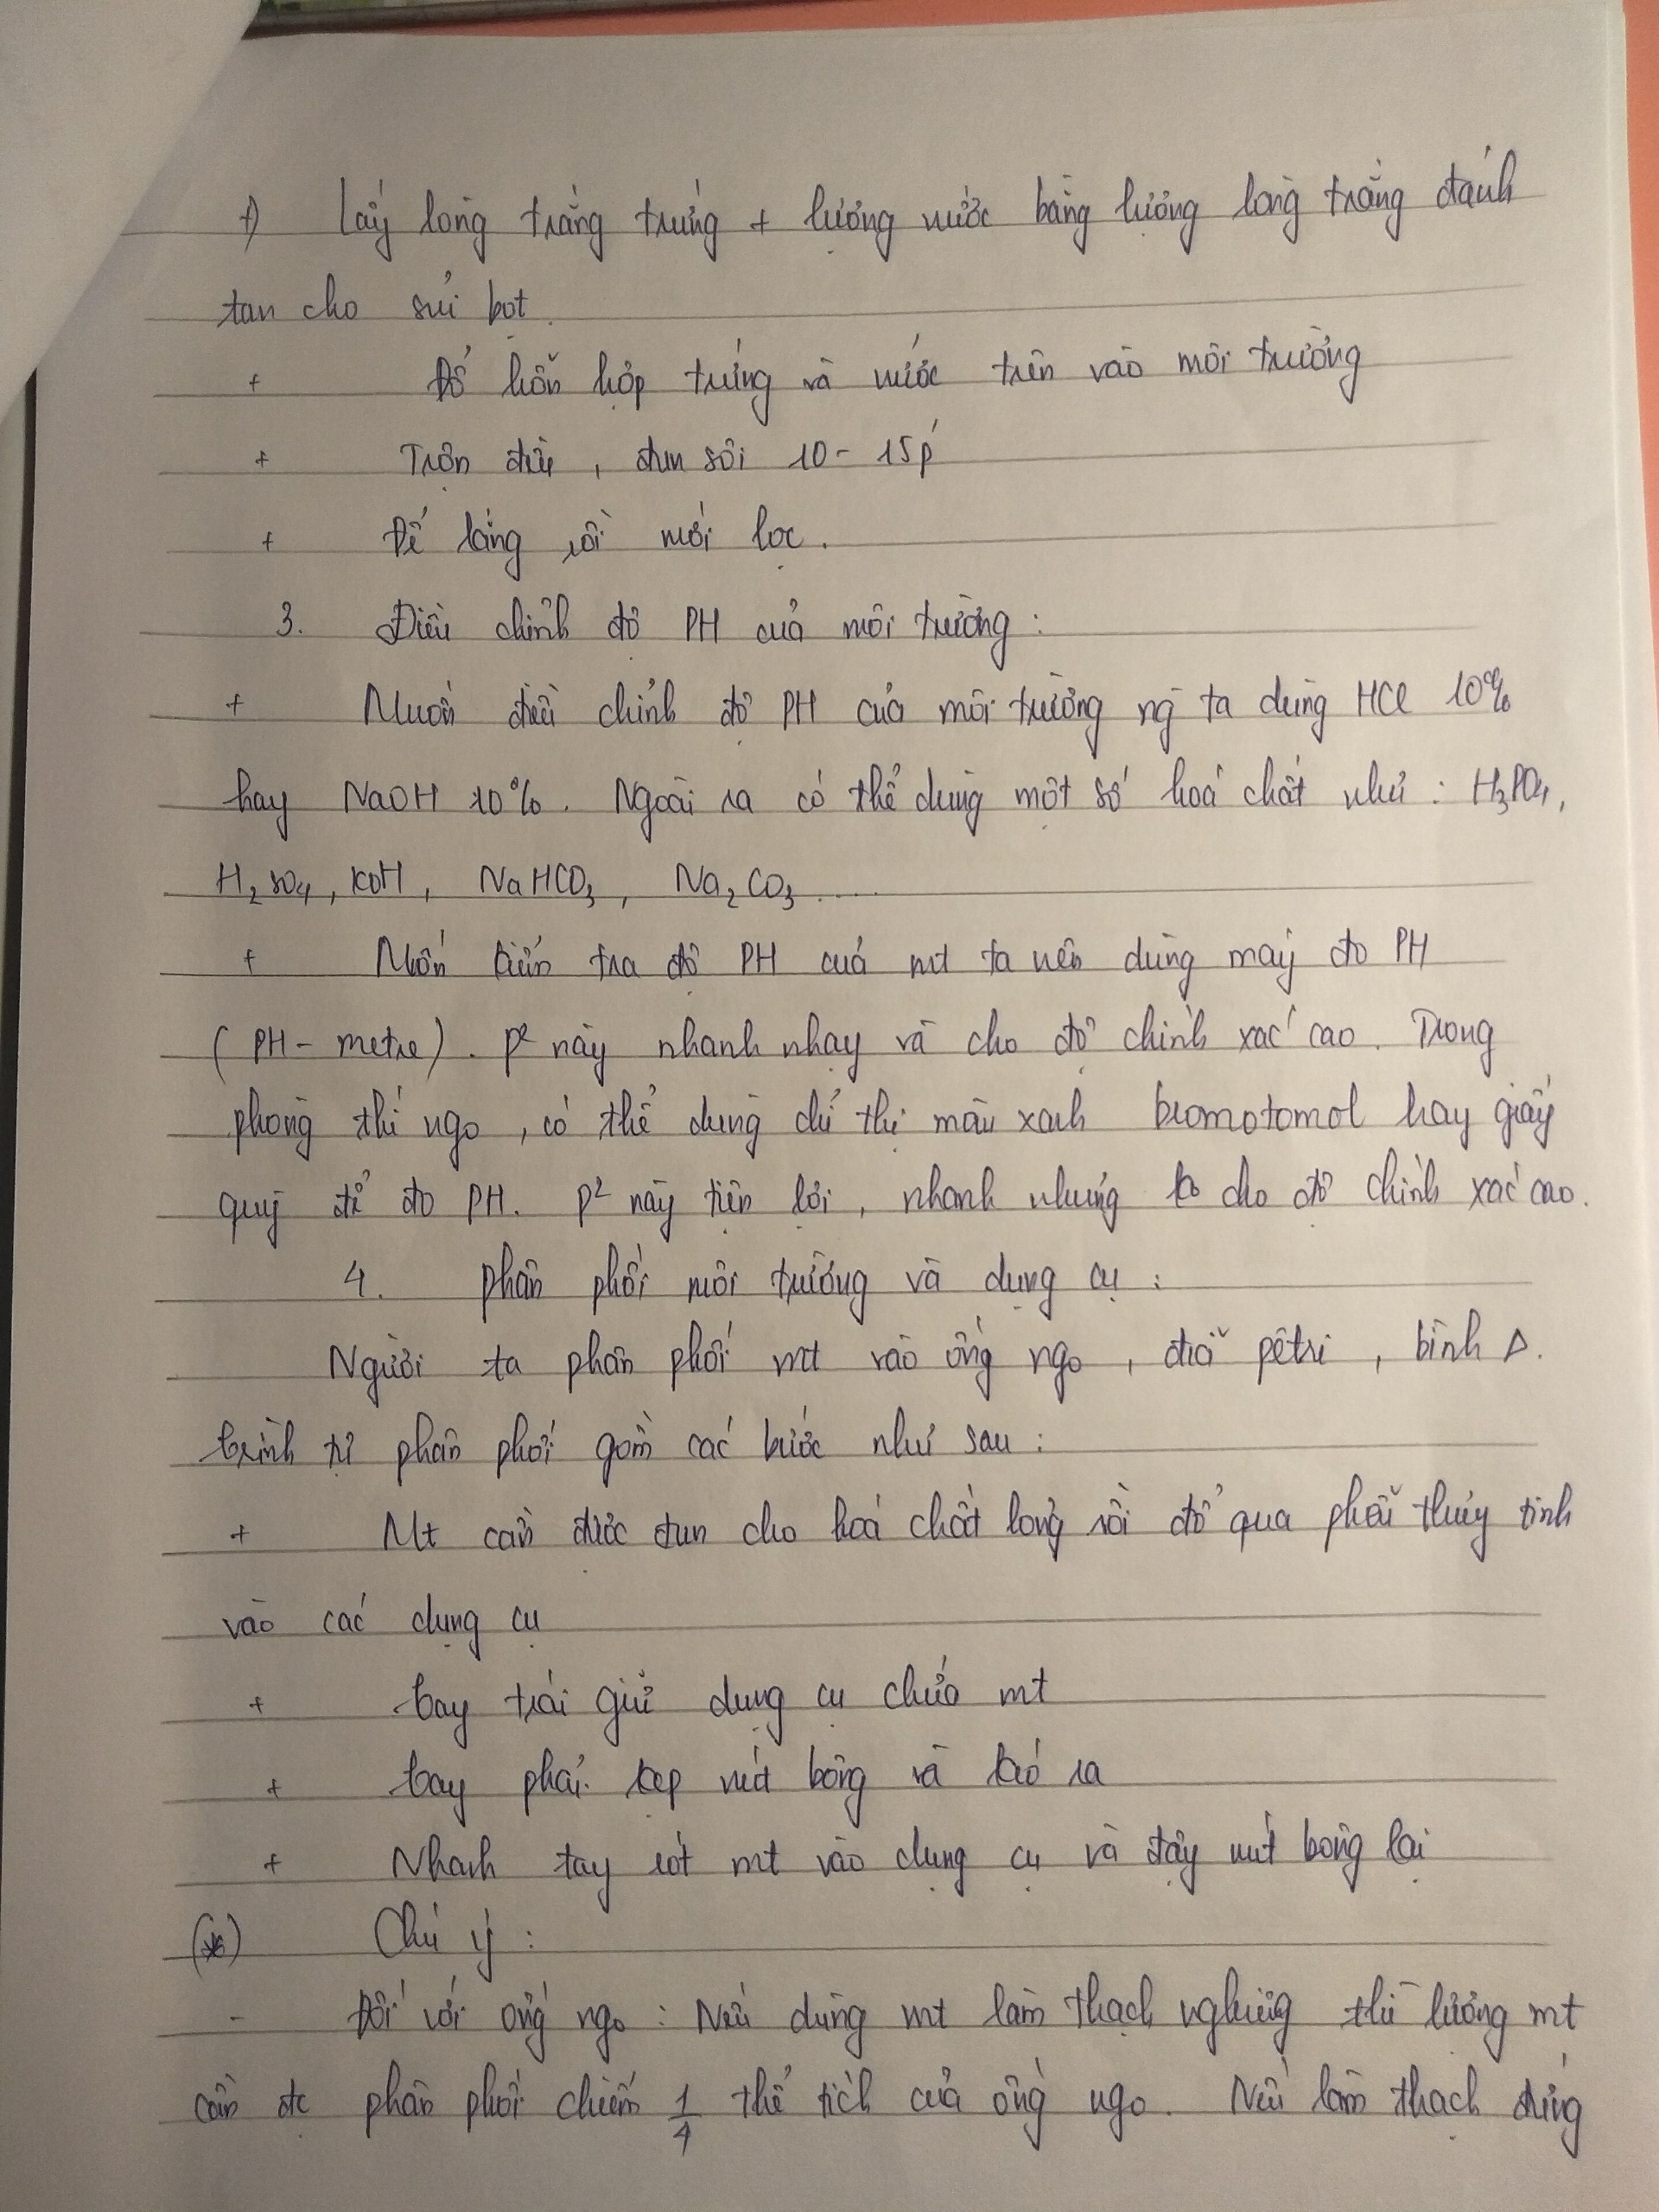 +) Lấy lòng trắng trứng + lượng nước bằng lượng lòng trắng đánh
tan cho sủi bọt.
+ Đổ hỗn hợp trứng và nước trên vào môi trường
+ Trộn đều, đun sôi 10 - 15p'
+ Để lắng rồi mới lọc.
3. Điều chỉnh độ PH của môi trường :
+ Muốn điều chỉnh độ PH của môi trường ng ta dùng HCl 10%
hay NaOH 10%. Ngoài ra có thể dùng một số hoá chất như : H₃PO₄,
H₂SO₄, KOH, NaHCO₃, Na₂CO₃....
+ Muốn kiểm tra độ PH của mt ta nên dùng máy đo PH
(PH - metre). P² này nhanh nhạy và cho độ chính xác cao. Trong
phòng thí ngo, có thể dùng chỉ thị màu xanh bromotomol hay giấy
quỳ để đo PH. P² này tiện lợi, nhanh nhưng ko cho độ chính xác cao.
4. Phân phối môi trường và dụng cụ :
Người ta phân phối mt vào ống ngo, đĩa pêtri, bình Δ.
trình tự phân phối gồm các bước như sau :
+ Mt cần được đun cho hoá chất lỏng rồi đổ qua phễu thủy tinh
vào các dụng cụ
+ tay trái giữ dụng cụ chứa mt
+ tay phải kẹp nút bông và kéo ra
+ Nhanh tay rót mt vào dụng cụ và đậy nút bông lại
(*) Chú ý :
- Đối với ống ngo : Nếu dùng mt làm thạch nghiêng thì lượng mt
cần đc phân phối chiếm 1/4 thể tích của ống ngo. Nếu làm thạch đứng